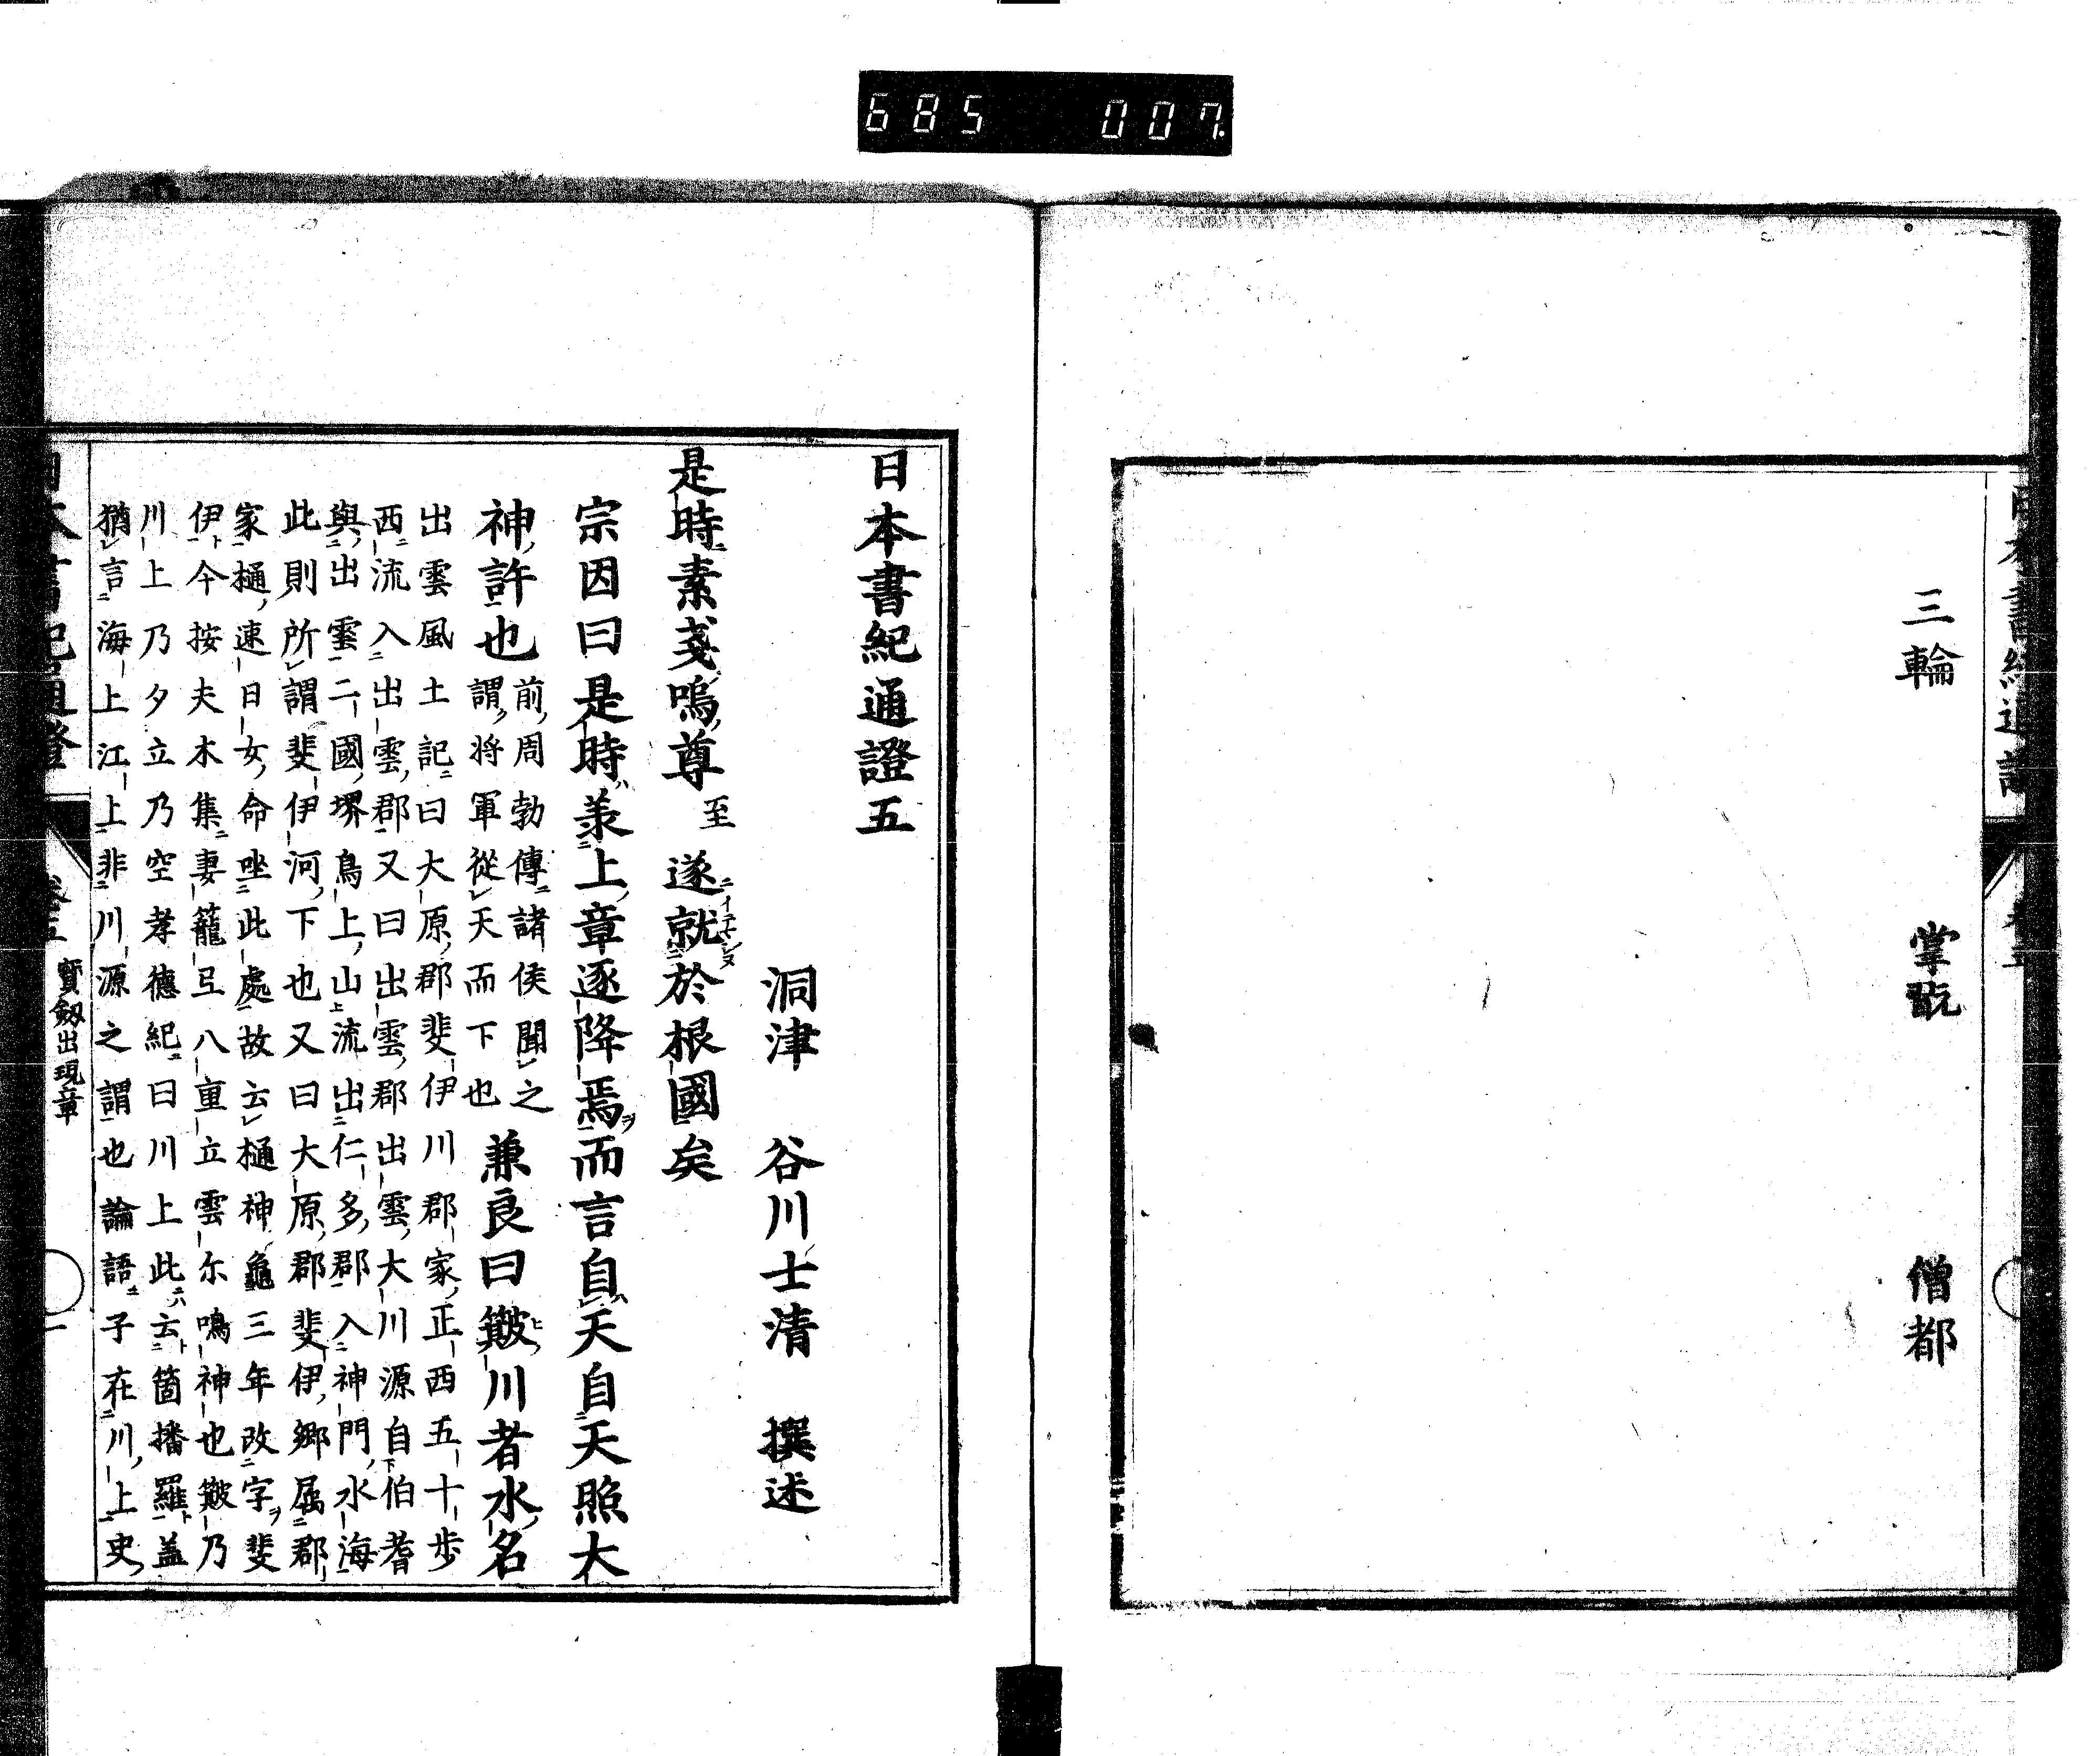 685 007
三輪 掌酖 僧都
日本書紀通證五
洞津 谷川士清 撰述
是時素戔嗚尊至遂就於根國矣
宗因曰是時兼上章逐降焉而言自天自天照大
神許也
前周勃傳諸侯聞之
謂將軍從天而下也
兼良曰簸川者水名
出雲風土記曰大原郡斐伊川郡家正西五十步
西流入出雲郡又曰出雲郡出雲大川源自伯耆
與出雲二國堺鳥上山流出仁多郡入神門水海
此則所謂斐伊河下也又曰大原郡斐伊鄉屬郡
家樋速日女命坐此處故云樋神龜三年改字斐
伊今按夫木集妻籠弖八重立雲尓鳴神也簸乃
川上乃夕立乃空孝德紀曰川上此云箇播羅蓋
猶言海上江上非川源之謂也論語子在川上史
寶劔出現章
一